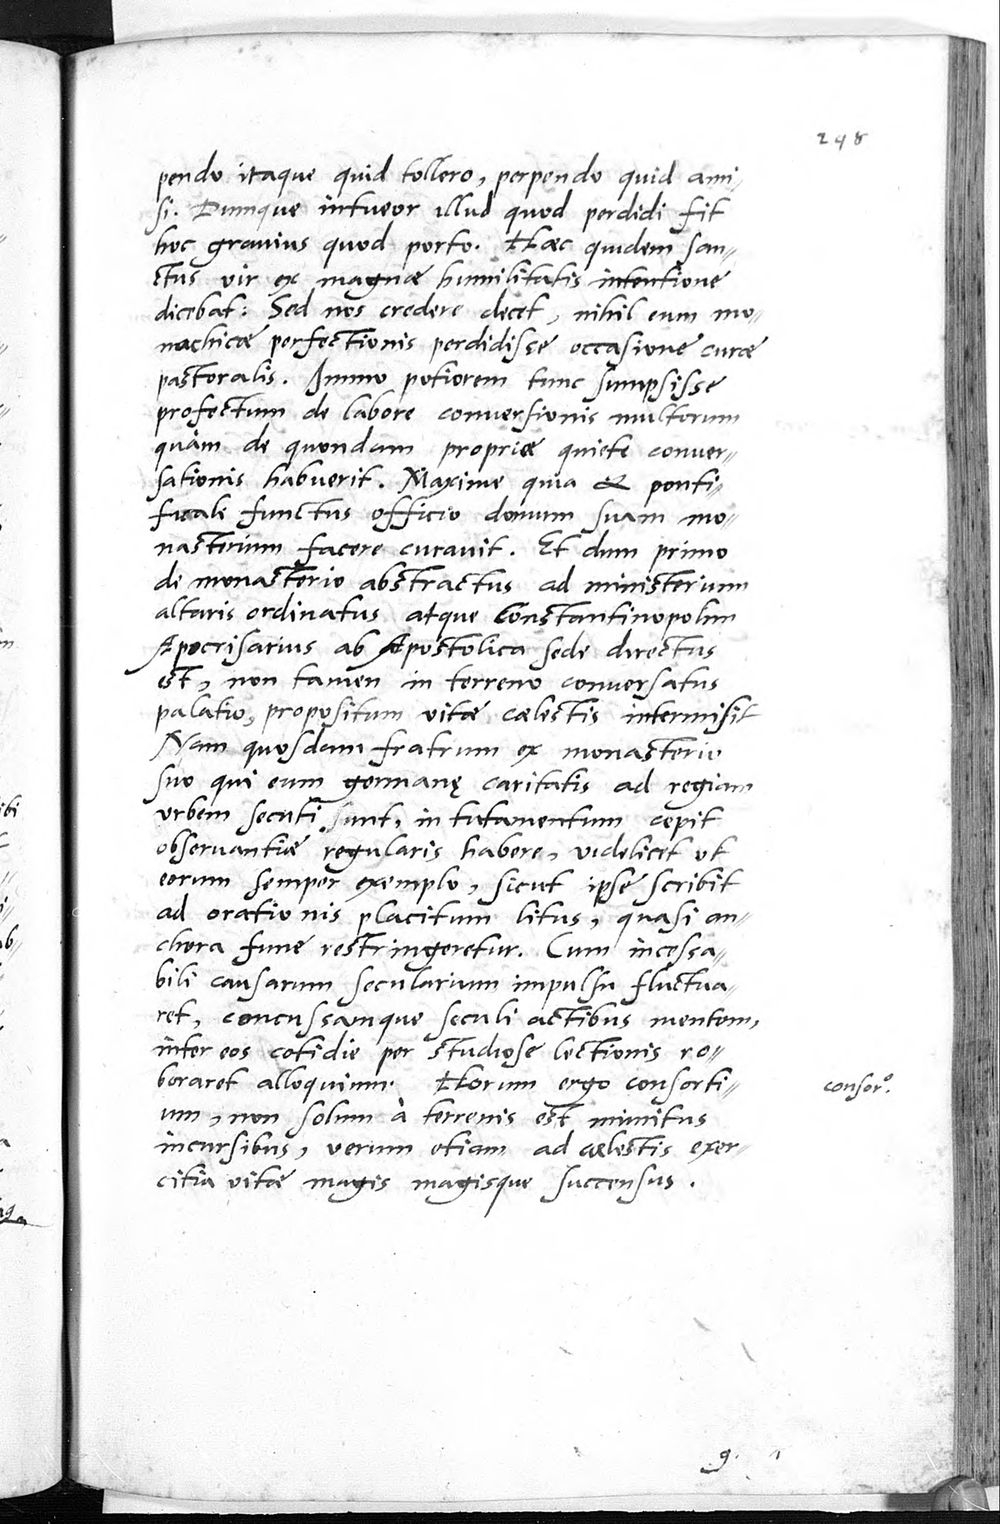 248
pendo itaque quid tollero, perpendo quid ami„
si. Dumque intueor illud quod perdidi fit
hoc grauius quod porto. Haec quidem san„
ctus vir ex magnæ humilitatis intentione
dicebat: Sed nos credere decet, nihil eum mo„
nachicæ perfectionis perdidisse occasione curæ
pastoralis. Immo potiorem tunc sumpsisse
profectum de labore conuersionis multorum
quàm de quondam propriæ quiete conuer„
sationis habuerit. Maxime quia & ponti„
ficale functus officio domum suam mo„
nasterium facere curauit. Et dum primo
de monasterio abstractus ad ministerium
altaris ordinatus atque Constantinopolim
Apocrisarius ab Apostolica sede directus
est, non tamen in terreno conuersatus
palatio, propositum vitæ cælestis intermisit
Nam quosdam fratrum ex monasterio
suo qui eum germanę caritatis ad regiam
vrbem secuti sunt, in tutamentum cepit
obseruantiæ regularis habere, videlicet vt
eorum semper exemplo, sicut ipse scribit
ad orationis placitum litus, quasi an„
chora fune restringeretur. Cum incessa„
bili causarum secularium impulsu fluctua„
ret, concussamque seculi actibus mentem,
inter eos cotidie per studiose lectionis ro„
boraret alloquium. Horum ergo consorti„
consor°.
um, non solum à terrenis est munitus
incursibus, verum etiam ad cælestis exer„
citia vitæ magis magisque succensus.
9.